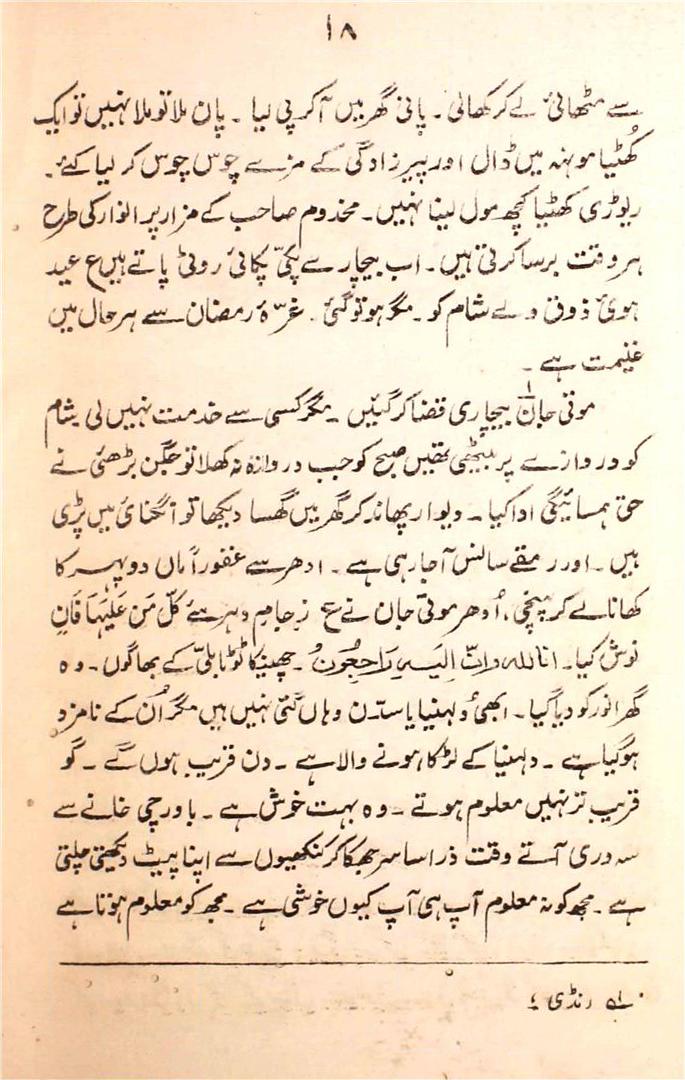 ۱۸
سے مٹھائی لے کر کھائی۔ پانی گھر میں آ کر پی لیا۔ پان ملا تو ملا نہیں تو ایک
کھٹیا موہنہ میں ڈال اور پیر زادگی کے مزے چوس چوس کر لیا کئے۔
ریوڑی کھٹیا کچھ مول لینا نہیں۔ مخدوم صاحب کے مزار پر انوار کی طرح
ہر وقت برسا کرتی ہیں۔ اب بیچارے پکی پکائی روٹی پاتے ہیں ع عید
ہوئی ذوق ولے شام کو۔ مگر ہو تو گئی۔ غرّۂ رمضان سے ہر حال میں
غنیمت ہے۔
موتی جان۱ بیچاری قضا کر گئیں۔ مگر کسی سے خدمت نہیں لی شام
کو دروازے پر بیٹھی تھیں صبح کو جب دروازہ نہ کھلا تو جگن بڑھئی نے
حق ہمسائیگی ادا کیا۔ دیوار پھاند کر گھر میں گھسا دیکھا تو انگنائی میں پڑی
ہیں۔ اور رمقے سانس آ جا رہی ہے۔ ادھر سے غفوراً ماں دوپہر کا
کھانا لے کر پہنچی، اُدھر موتی جان نے ع زجامِ دہر مئے کلّ مَن عَلَیہَا فَانٍ
نوش کیا۔ انا للہ و انّا اِلَیہِ رَاجِعُونُ۔ چھینکا ٹوٹا بلیّ کے بھاگوں۔ وہ
گھر انور کو دیا گیا۔ ابھی دلہنیا یا ستن وہاں گئی نہیں ہیں مگر اُن کے نامزد
ہو گیا ہے۔ دلہنیا کے لڑکا ہونے والا ہے۔ دن قریب ہوں گے۔ گو
قریب تر نہیں معلوم ہوتے۔ وہ بہت خوش ہے۔ باورچی خانے سے
سہ دری آتے وقت ذرا سا سر جھکا کر کنکھیوں سے اپنا پیٹ دیکھتی چلتی
ہے۔ مجھ کو نہ معلوم آپ ہی آپ کیوں خوشی ہے۔ مجھ کو معلوم ہوتا ہے
۱ رنڈی